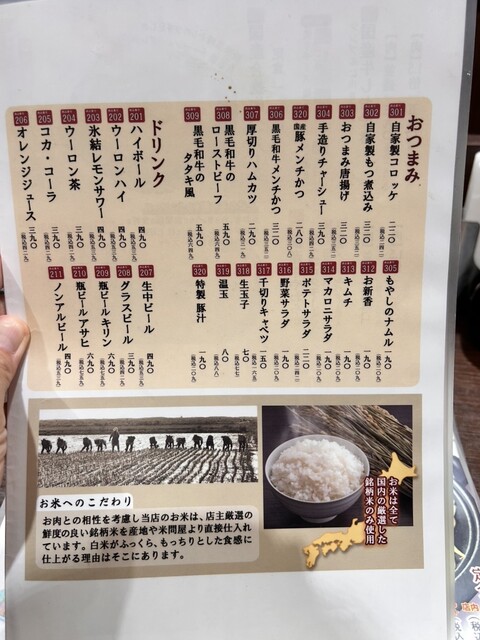 おつまみ
301 自家製コロッケ 一二〇
302 自家製もつ煮込み 三二〇
303 おつまみ唐揚げ 三二〇
304 手造りチャーシュー 三九〇 (税込四二九)
320 国産豚メンチかつ 二八〇 (税込三〇八)
306 黒毛和牛メンチかつ 三二〇
307 厚切りハムカツ 二九〇
308 黒毛和牛の
ローストビーフ 五九〇 (税込六四九)
309 黒毛和牛の
タタキ風 五九〇 (税込六四九)
305 もやしのナムル 一九〇 (税込二〇九)
312 お新香 一九〇 (税込二〇九)
313 キムチ 一九〇 (税込二〇九)
314 マカロニサラダ 一九〇 (税込二〇九)
315 ポテトサラダ 二二〇
316 野菜サラダ
317 千切りキャベツ 一五〇
318 生玉子 七〇 (税込七七)
319 温玉 八〇 (税込八八)
320 特製 豚汁 一九〇 (税込二〇九)
ドリンク
201 ハイボール 四九〇
202 ウーロンハイ 四九〇
203 氷結レモンサワー 四九〇
204 ウーロン茶 三九〇
205 コカ・コーラ 三九〇 (税込四二九)
206 オレンジジュース 三九〇 (税込四二九)
207 生中ビール 四九〇 (税込五三九)
208 グラスビール 三九〇 (税込四二九)
209 瓶ビール キリン 六九〇 (税込七五九)
210 瓶ビール アサヒ 六九〇 (税込七五九)
211 ノンアルビール 四九〇 (税込五三九)
お米へのこだわり
お肉との相性を考慮し当店のお米は、店主厳選の
鮮度の良い銘柄米を産地や米問屋より直接仕入れ
ています。白米がふっくら、もっちりとした食感に
仕上がる理由はそこにあります。
お米は全て
国内の厳選した
銘柄米のみ使用